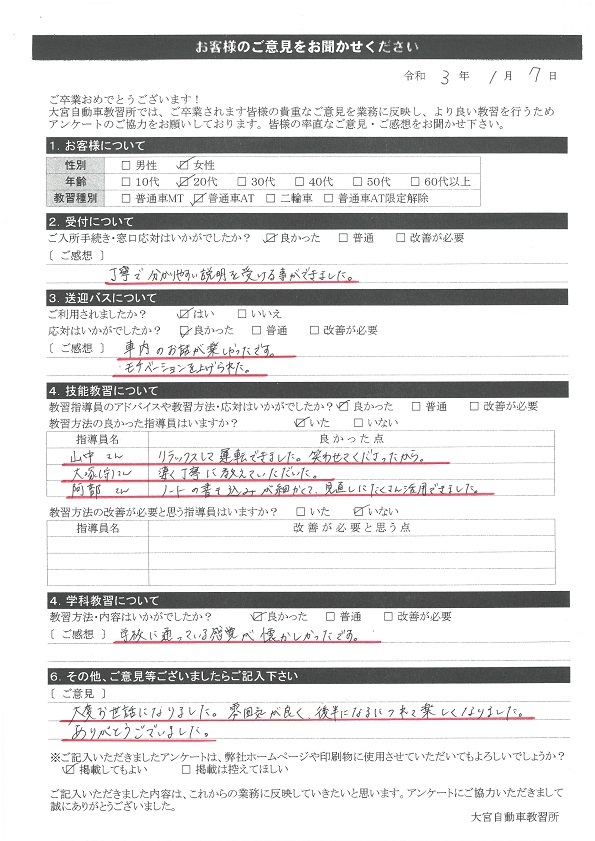 お客様のご意見をお聞かせください
令和 3 年 1 月 7 日
ご卒業おめでとうございます！
大宮自動車教習所では、ご卒業されます皆様の貴重なご意見を業務に反映し、より良い教習を行うため
アンケートのご協力をお願いしております。皆様の率直なご意見・ご感想をお聞かせ下さい。
1. お客様について
性別 □ 男性 ☑ 女性
年齢 □ 10代 ☑ 20代 □ 30代 □ 40代 □ 50代 □ 60代以上
教習種別 □ 普通車MT ☑ 普通車AT □ 二輪車 □ 普通車AT限定解除
2. 受付について
ご入所手続き・窓口応対はいかがでしたか？ ☑ 良かった □ 普通 □ 改善が必要
〔 ご感想 〕
丁寧で分かりやすい説明を受ける事ができました。
3. 送迎バスについて
ご利用されましたか？ ☑ はい □ いいえ
応対はいかがでしたか？ ☑ 良かった □ 普通 □ 改善が必要
〔 ご感想 〕 車内のお話が楽しかったです。
モチベーションを上げられた。
4. 技能教習について
教習指導員のアドバイスや教習方法・応対はいかがでしたか？ ☑ 良かった □ 普通 □ 改善が必要
教習方法の良かった指導員はいますか？ ☑ いた □ いない
指導員名 良かった点
山中さん リラックスして運転できました。笑わせてくださったから。
大塚さん 丁寧に教えていただいた。
阿部さん ノートの書き込みが細かくて、見直しにたくさん活用できました。
教習方法の改善が必要と思う指導員はいますか？ □ いた ☑ いない
指導員名 改善が必要と思う点
4. 学科教習について
教習方法・内容はいかがでしたか？ ☑ 良かった □ 普通 □ 改善が必要
〔 ご感想 〕 学校に通っている感覚が懐かしかったです。
6. その他、ご意見等ございましたらご記入下さい
〔 ご意見 〕
大変お世話になりました。雰囲気が良く、後半になるにつれて楽しくなりました。
ありがとうございました。
※ご記入いただきましたアンケートは、弊社ホームページや印刷物に使用させていただいてもよろしいでしょうか？
☑ 掲載してもよい □ 掲載は控えてほしい
ご記入いただきました内容は、これからの業務に反映していきたいと思います。アンケートにご協力いただきまして
誠にありがとうございました。
大宮自動車教習所